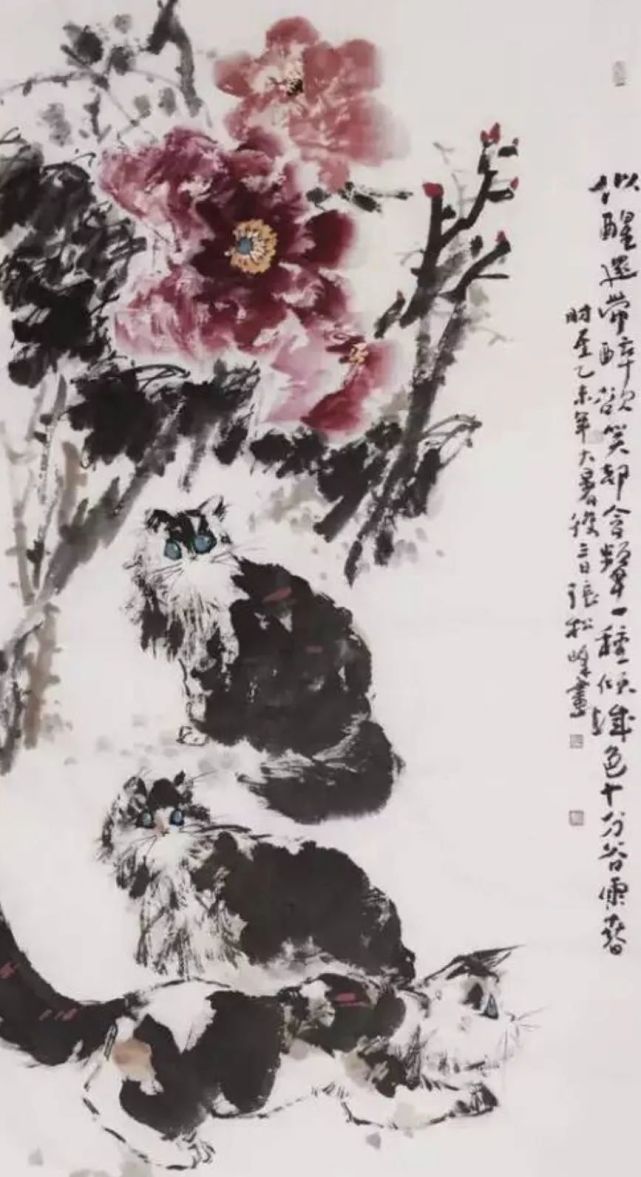 似醒还带醉欲笑却含颦一種倾城色十分谷雨春
时至乙未年大暑後三日張松峰畫